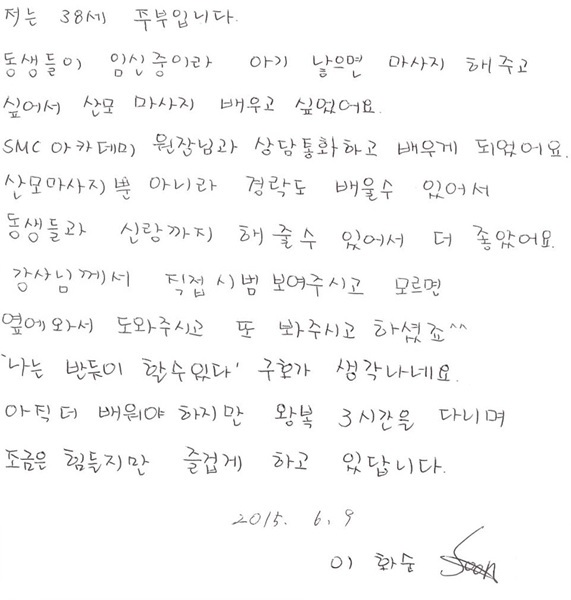 저는 38세 주부입니다.
동생들이 임신중이라 아기 낳으면 마사지 해주고
싶어서 산모 마사지 배우고 싶었어요.
SMC아카데미 원장님과 상담통화하고 배우게 되었어요.
산모마사지뿐 아니라 경락도 배울수 있어서
동생들과 신랑까지 해 줄수 있어서 더 좋았어요.
강사님께서 직접 시범 보여주시고 모르면
옆에와서 도와주시고 또 봐주시고 하셨죠^^
'나는 반듯이 할수있다' 구호가 생각나네요.
아직더 배워야 하지만 왕복 3시간을 다니며
조금은 힘들지만 즐겁게 하고 있답니다.
2015. 6. 9
이 화순 Soon